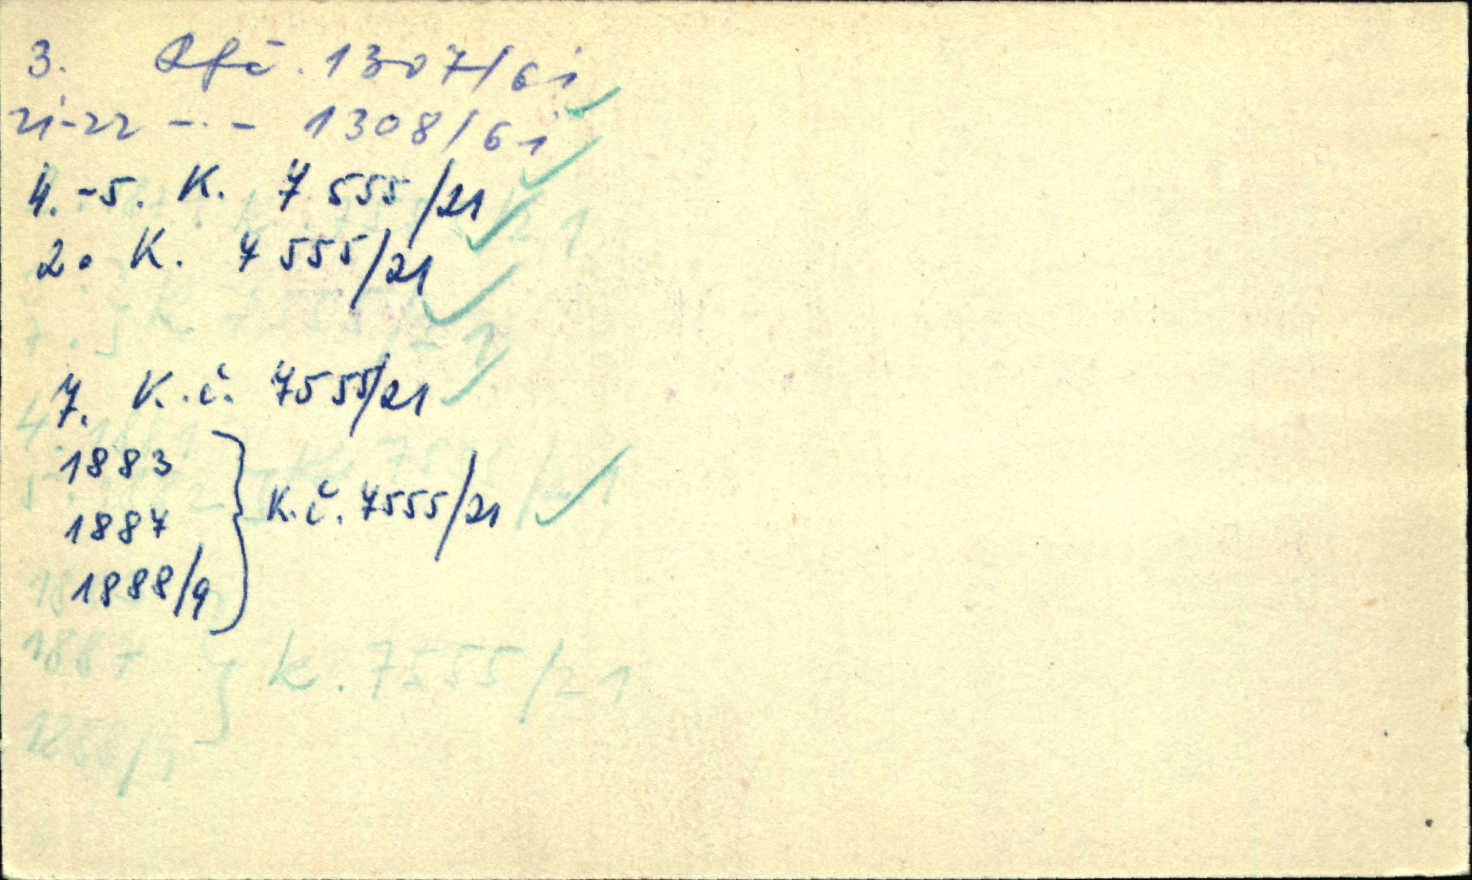 3. Rfč. 1307/61
21-22 -.- 1308/61
4.-5. K. 7555/21
20 K. 7555/21
7. K.č. 7555/21
1883
1887 } K.č. 7555/21
1888/9
1887 } K. 7555/21
1888/9